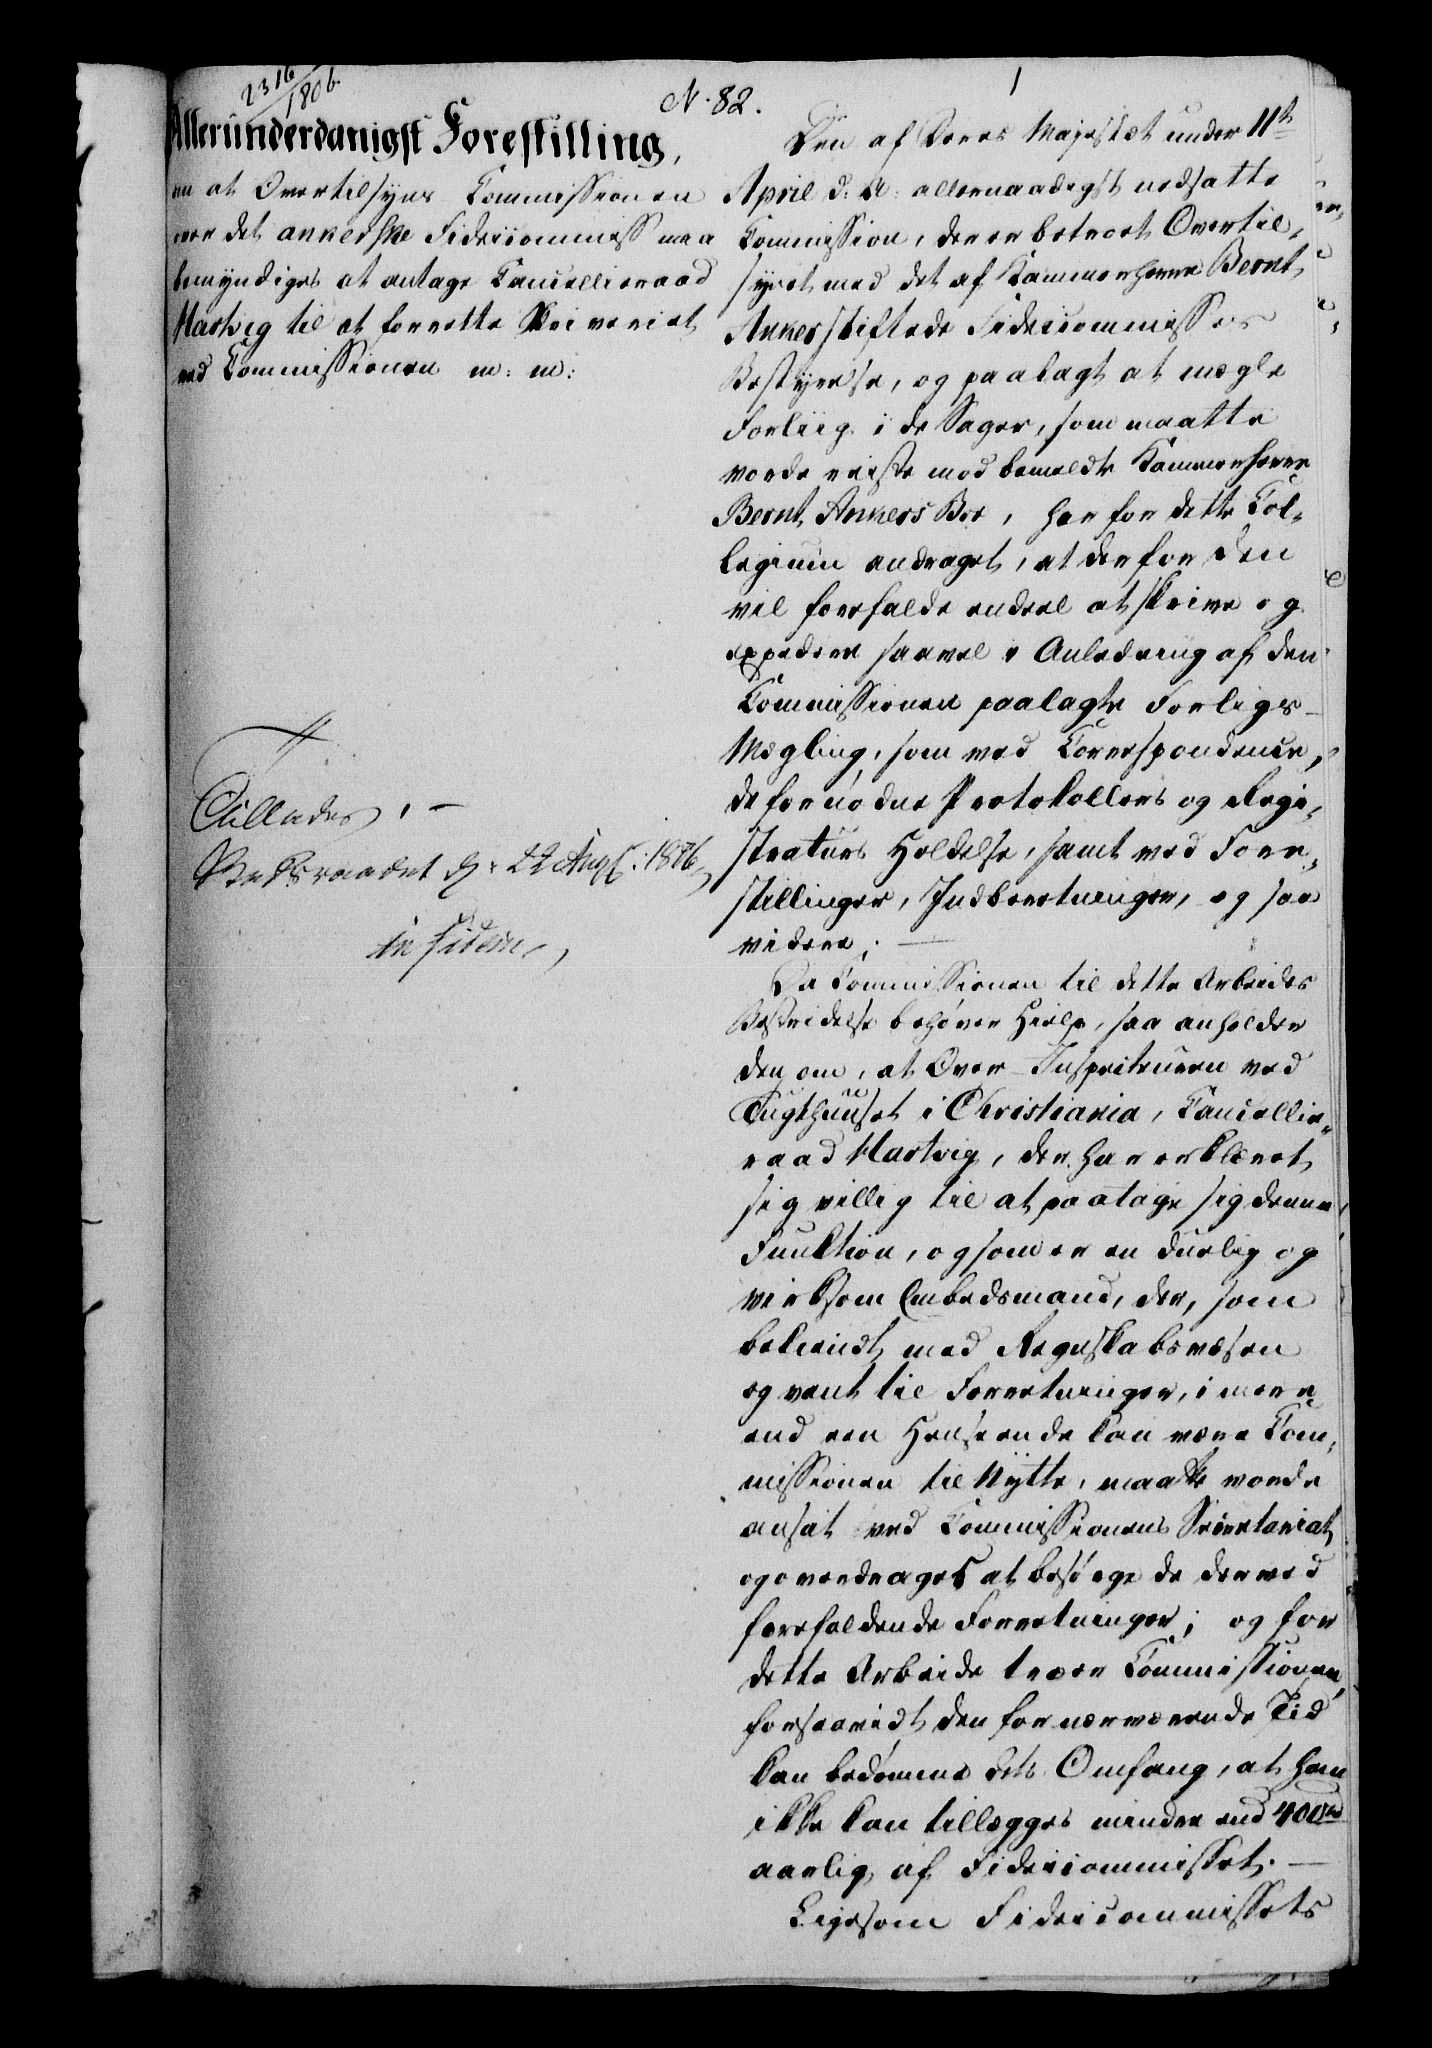 2316/1806.
N. 82.
1
Allerunderdanigst Forestilling,
om at Overtilsyns Commissionen
over det ankerske Fideicommiss maa
bemyndiges at antage Cancellieraad
Hartvig til at forrette Skriveriet
ved Commissionen m: m:
Billades, –
Statsraadet d. 22 Aug: 1806,
in fidem,
Den af Deres Majestæt under 11te
April d: A: allernaadigst nedsatte
Commission, der er betroet Overtil-
synet med det af Kammerherre Bernt
Anker stiftede Fideicommisses
Bestyrelse, og paalagt at mægle
Forliig i de Sager, som maatte
vorde reiste mod bemeldte Kammerherre
Bernt Ankers Boe, har for dette Col-
legium andraget, at der for den
vil forefalde endeel at skrive og
expedere saavel i Anledning af den
Commissionen paalagte Forligs-
Mægling, som ved Correspondence,
de fornødne Protokollers og Regi-
straturs Holdelse, samt ved Fore-
stillinger, Indberetninger, og saa
videre; –
Da Commissionen til dette Arbeides
Bestridelse behøver Hielp, saa anholder
den om, at Over-Inspecteuren ved
Tugthuuset i Christiania, Cancellie-
raad Hartvig, der har erklæret
sig villig til at paatage sig denne
Funktion, og som er en duelig og
virksom Embedsmand, der, som
bekiendt med Regnskabsvæsen
og vant til Forretninger, i mere
end een Henseende kan være Com-
missionen til Nytte, maatte vorde
ansat ved Commissionens Secretariat
og overdrages at besørge de derved
forefaldende Forretninger; og for
dette Arbeide troer Commissionen,
forsaavidt den for nærværende Tid
kan bedømme dets Omfang, at ham
ikke kan tillægges mindre end 400 rd
aarlig af Fideicommisset. –
Ligesom Fideicommissets